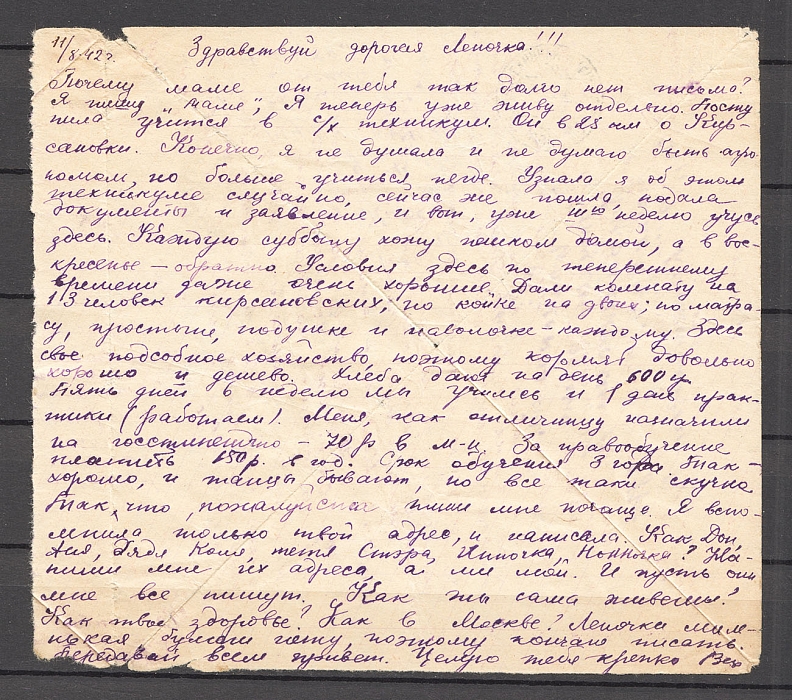 11/X 42 г. Здравствуй дорогая Леночка!!!
Почему маме от тебя так долго нет письма?
Я пишу „маме“, Я теперь уже живу отдельно. Посту
пила учится в с/х техникум. Он в 25 км о Кир-
сановки. Конечно, я не думала и не думаю быть агро
номом, но больше учиться негде. Узнала я об этом
техникуме случайно, сейчас же пошла, подала
документы и заявление, и вот, уже неделю учусь
здесь. Каждую субботу хожу пешком домой, а в вос-
кресенье — обратно. Условия здесь по теперешнему
времени даже очень хорошие. Дали комнату на
13 человек кирсановских, по койке на двоих; по матра-
су, простыне, подушке и наволочке – каждому. Здесь
свое подсобное хозяйство, поэтому кормят довольно
хорошо и дешево. Хлеба дают на день 600 гр
Пять дней в неделю мы учимся и 1 день прак-
тики (работаем). Меня, как отличницу назначили
на госстипендию – 70 р в м-ц За правообучение
платить 150 р. в год. Срок обучения 3 года. Так –
хорошо, и танцы бывают, но все таки скучно
Так, что, пожалуйста пиши мне почаще. Я вспо-
мнила, только твой адрес, и написала. Как
Ася, дядя Коля, тетя Инночка, Нонночка? На-
пиши мне их адреса, а им мой. И пусть они
мне все пишут. Как ты сама живешь?
Как твое здоровье? Как в Москве? Леночка
бумаги нету, поэтому кончаю писать.
Передавай всем привет. Целую тебя крепко